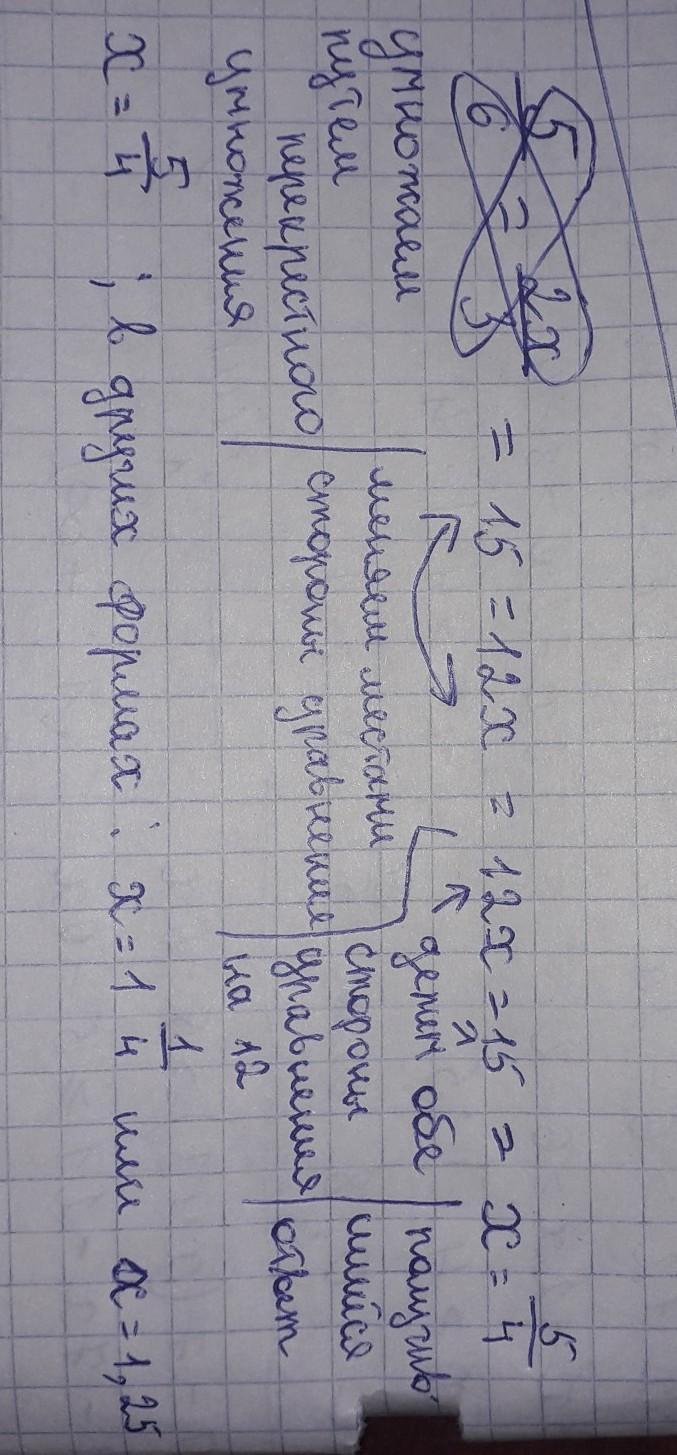 5/6 = 2x/3 = 15 = 12x = 12x = 15 = x = 5/4
умножаем
путем
перекрестного
умножения
меняем местами
стороны уравнения
делим обе
стороны
уравнения
на 12
получив
шийся
ответ
x = 5/4 ; в других формах: x = 1 1/4 или x = 1,25